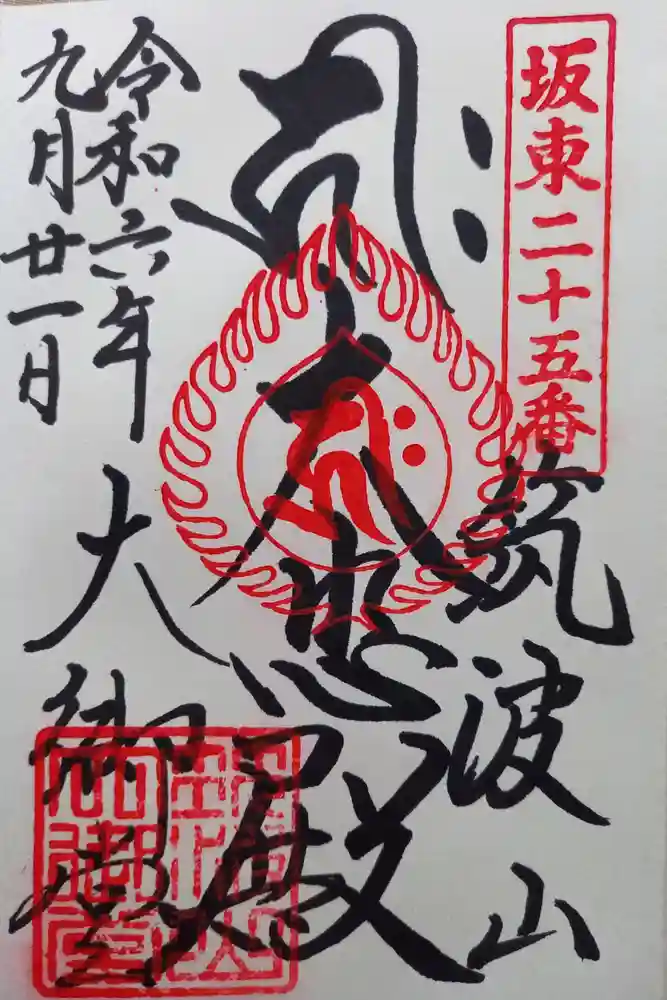 坂東二十五番
筑波山
大悲殿
令和六年
九月廿一日
大御堂